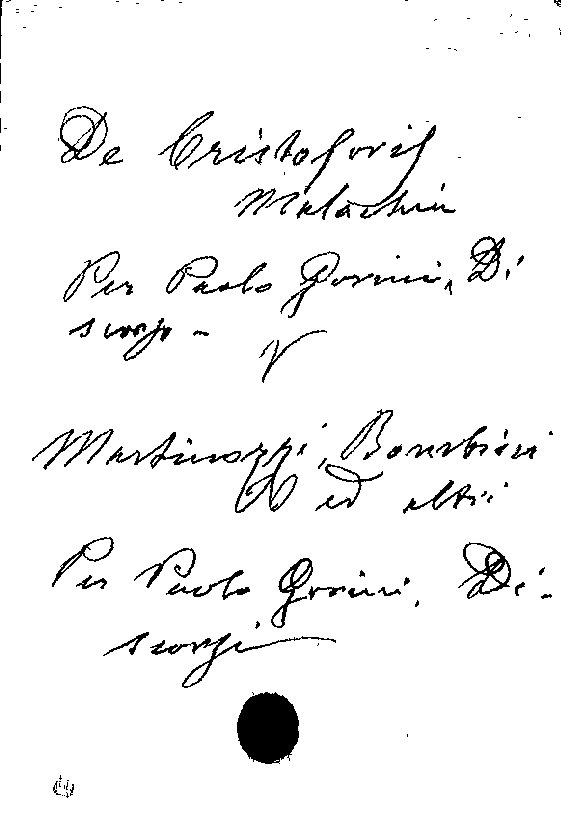 De Cristoforis
Malachia
Per Paolo Gorini, Di
scorso -
V
Martinozzi, Bonubisi
ed altri
Per Paolo Gorini. Di-
scorsi